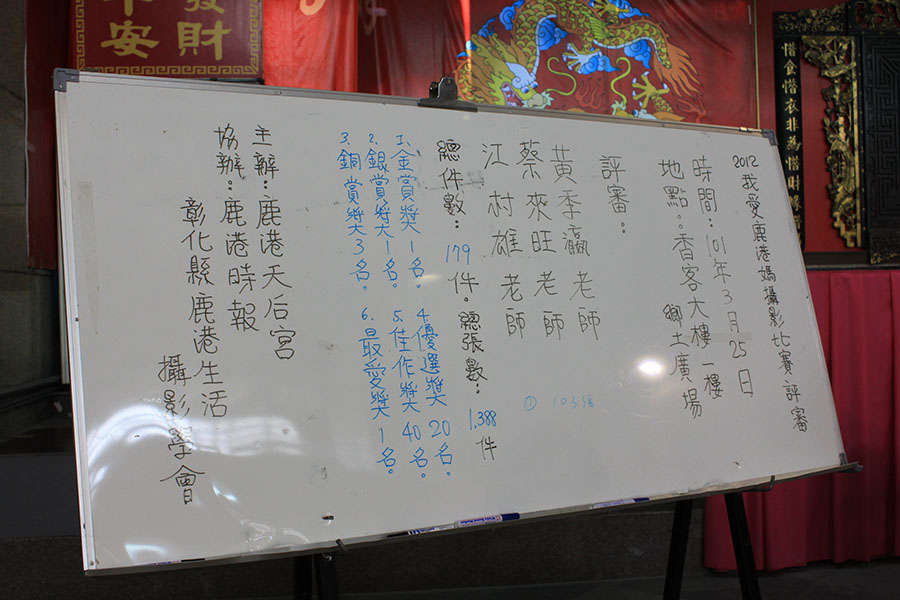 2012我愛鹿港媽攝影比賽評審
時間：101年3月25日
地點：香客大樓一樓
鄉土廣場
評審：
黃季瀛老師
蔡來旺老師
江村雄老師
總件數：179件．總張數：1,388件
1、金賞獎1名。
2、銀賞獎1名。
3、銅賞獎3名。
4、優選獎20名。
5、佳作獎40名。
6、最愛獎1名。
主辦：鹿港天后宮
協辦：鹿港時報
彰化縣鹿港生活
攝影學會
發財
平安
惜食惜衣非為惜財